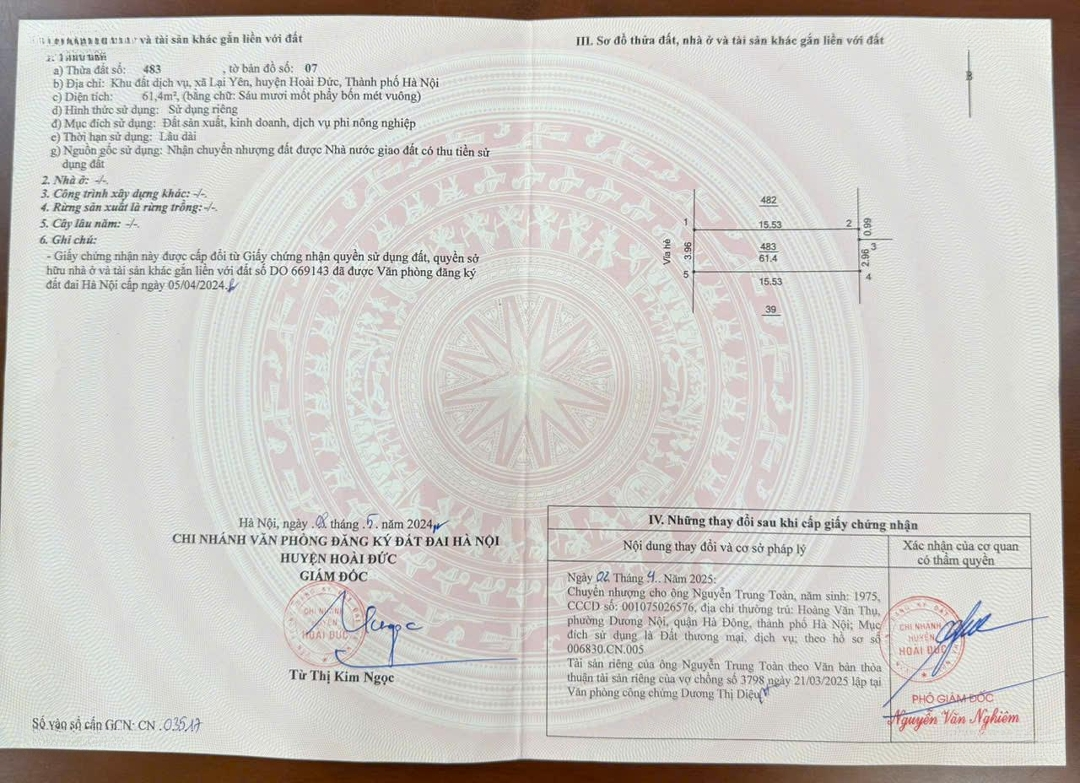 và tài sản khác gắn liền với đất
a) Thửa đất số: 483 , tờ bản đồ số: 07
b) Địa chỉ: Khu đất dịch vụ, xã Lại Yên, huyện Hoài Đức, Thành phố Hà Nội
c) Diện tích: 61,4m², (bằng chữ: Sáu mươi mốt phẩy bốn mét vuông)
d) Hình thức sử dụng: Sử dụng riêng
đ) Mục đích sử dụng: Đất sản xuất, kinh doanh, dịch vụ phi nông nghiệp
e) Thời hạn sử dụng: Lâu dài
g) Nguồn gốc sử dụng: Nhận chuyển nhượng đất được Nhà nước giao đất có thu tiền sử
dụng đất
2. Nhà ở: -/-.
3. Công trình xây dựng khác: -/-.
4. Rừng sản xuất là rừng trồng: -/-.
5. Cây lâu năm: -/-.
6. Ghi chú:
- Giấy chứng nhận này được cấp đổi từ Giấy chứng nhận quyền sử dụng đất, quyền sở
hữu nhà ở và tài sản khác gắn liền với đất số DO 669143 đã được Văn phòng đăng ký
đất đai Hà Nội cấp ngày 05/04/2024.
Hà Nội, ngày 08 tháng 5. năm 2024
CHI NHÁNH VĂN PHÒNG ĐĂNG KÝ ĐẤT ĐAI HÀ NỘI
HUYỆN HOÀI ĐỨC
GIÁM ĐỐC
CHI NHÁNH
HUYỆN
HOÀI ĐỨC
Từ Thị Kim Ngọc
Số vào sổ cấp GCN: CN .03517
III. Sơ đồ thửa đất, nhà ở và tài sản khác gắn liền với đất
B
482
1
15.53
2
0.99
Vỉa hè
3.96
483
61.4
3
2.96
5
15.53
4
39
IV. Những thay đổi sau khi cấp giấy chứng nhận
Nội dung thay đổi và cơ sở pháp lý
Xác nhận của cơ quan
có thẩm quyền
Ngày 02 Tháng 4.. Năm 2025:
Chuyển nhượng cho ông Nguyễn Trung Toàn, năm sinh: 1975,
CCCD số: 001075026576, địa chỉ thường trú: Hoàng Văn Thụ,
phường Dương Nội, quận Hà Đông, thành phố Hà Nội; Mục
đích sử dụng là Đất thương mại, dịch vụ; theo hồ sơ số
006830.CN.005
Tài sản riêng của ông Nguyễn Trung Toàn theo Văn bản thỏa
thuận tài sản riêng của vợ chồng số 3798 ngày 21/03/2025 lập tại
Văn phòng công chứng Dương Thị Diệu
CHI NHÁNH
HUYỆN
HOÀI ĐỨC
PHÓ GIÁM ĐỐC
Nguyễn Văn Nghiêm